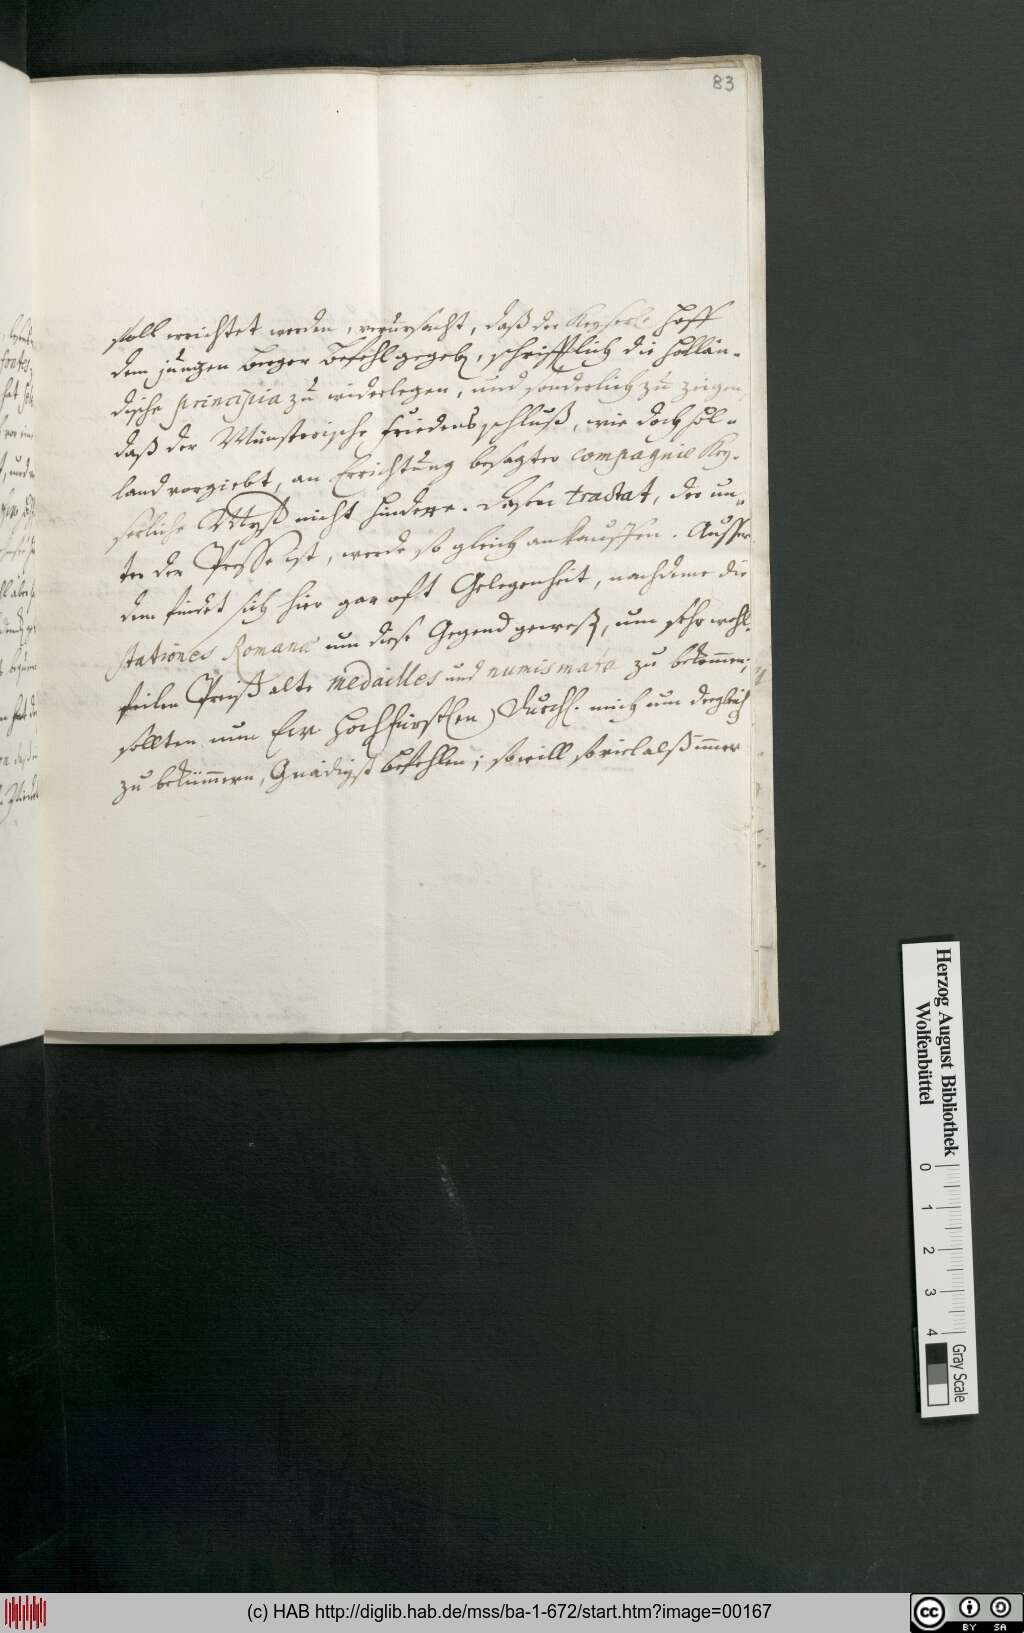 83
soll errichtet werden, verursacht, daß der Keyserl. Hoff
dem jungen Berger Befehl gegeb, schrifftlich die Hollän-
dische principia zu widerlegen, und sonderlich zu zeigen,
daß der Münsterische Friedensschluß, wie doch Hol-
land vorgiebt, an Errichtung besagter compagnie Key-
serliche Mayst nicht hindere. Diesen tractat, der un-
ter der Presse ist, werde so gleich ankauffen. Ausser
dem findet sich hier gar offt Gelegenheit, nachdeme die
stationes Romanæ um diese Gegend geweß, um sehr wohl-
feilen Preiß alte medailles und numismata zu bekommen;
sollten nun Ew. Hochfürstl(en) Durchl. mich um dergleich
zu bekümmern, Gnädigst befehlen; so will so viel alß immer
Herzog August Bibliothek
Wolfenbüttel
0 1 2 3 4
Gray Scale
(c) HAB http://diglib.hab.de/mss/ba-1-672/start.htm?image=00167
cc BY SA